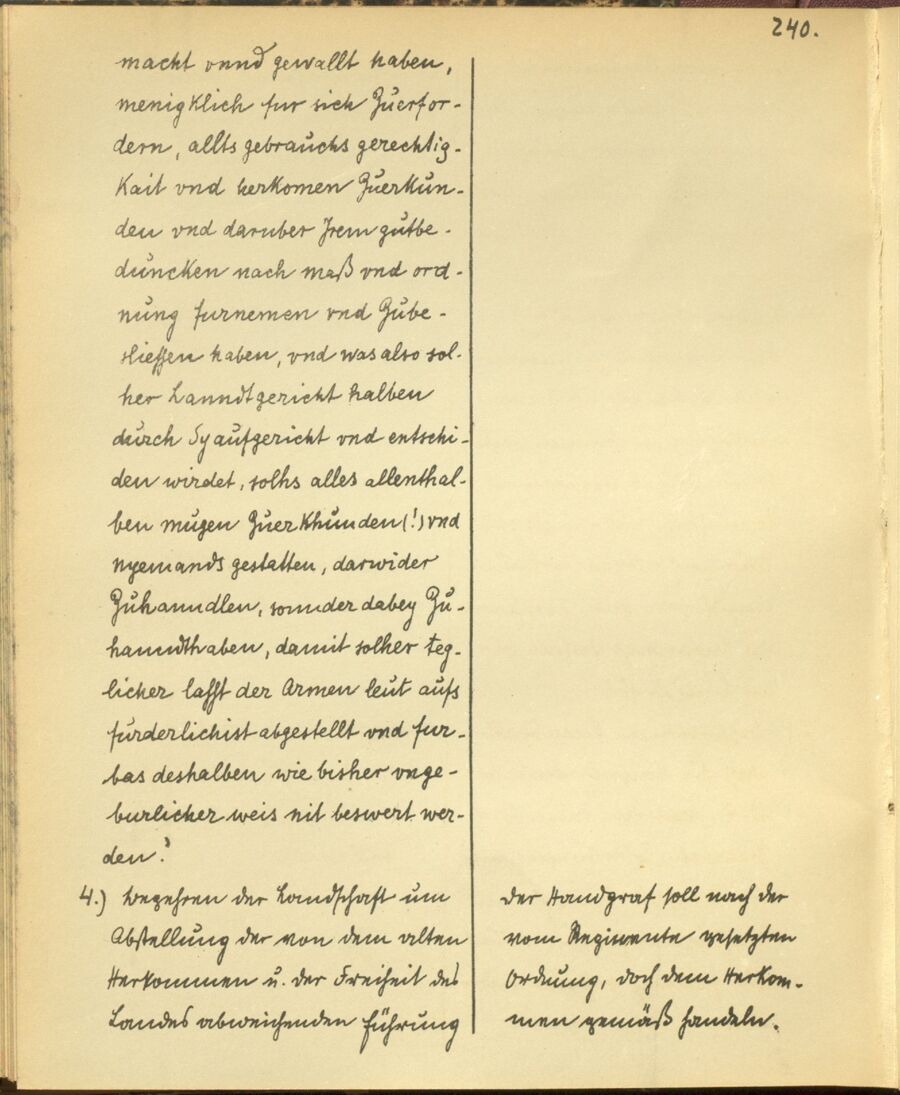 240.
macht vnnd gewallt haben,
menigklich fur sich Zuerfor-
dern, allts gebrauchs gerechtig-
Kait vnd herkomen Zuerkun-
den vnd daruber Jrem gutbe-
duncken nach maß vnd ord-
nung furnemen vnd Zube-
sliessen haben, vnd was also sol-
her Lanndtgericht halben
durch Sy aufgericht vnd entschi-
den wirdet, solhs alles allenthal-
ben mugen Zuerkhunden (!) vnd
nyemands gestatten, darwider
Zuhanndlen, sonnder dabey Zu-
hanndthaben, damit solher teg-
licher lasst der Armen leut aufs
furderlichist abgestellt vnd fur-
bas deshalben wie bisher vnge-
burlicher weis nit beswert wer-
den.
4.) Begehren der Landschaft um
Abstellung der von dem alten
Herkommen u. der Freiheit des
Landes abweichenden Führung
Der Handgraf soll nach der
vom Regimente gesetzten
Ordnung, doch dem Herkom-
men gemäß handeln.